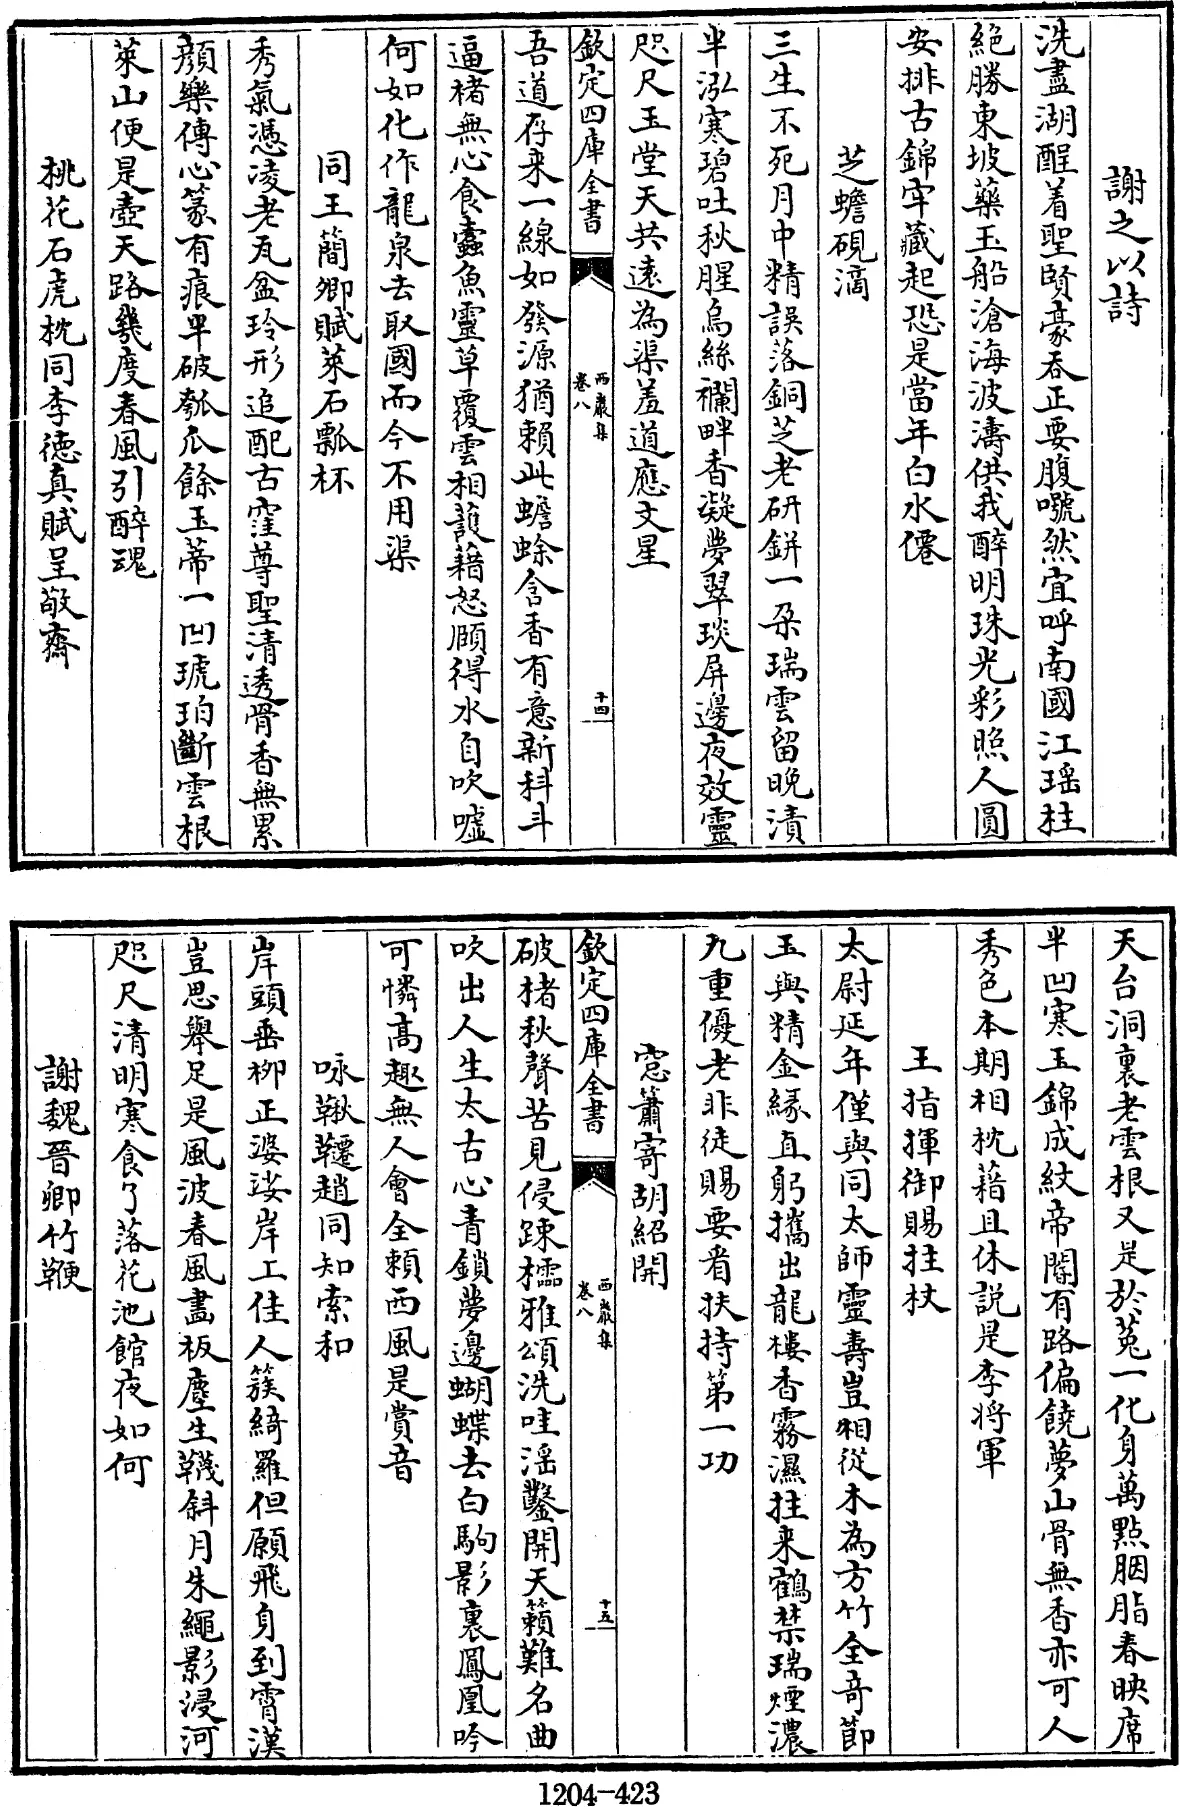 謝之以詩
洗盡湖酲着聖賢豪吞正要腹嘵然宜呼南國江瑶柱
絶勝東坡藥玉船滄海波濤供我醉明珠光彩照人圓
安排古錦牢藏起恐是當年白水僊
芝蟾硯滴
三生不死月中精誤落銅芝老研缾一朶瑞雲留晚漬
半泓寒碧吐秋腥烏絲襴畔香凝夢翠琰屏邊夜效靈
咫尺玉堂天共遠為渠羞道應文星
欽定四庫全書
西巖集
卷八
十四
吾道存来一線如發源猶賴此蟾蜍含香有意新科斗
逼楮無心食蠧魚靈草覆雲相䕶藉怒頤得水自吹噓
何如化作龍泉去取國而今不用渠
同王簡卿賦萊石瓢杯
秀氣憑淩老瓦盆玲形追配古窪尊聖清透骨香無累
顔樂傳心篆有痕半破瓠瓜餘玉蒂一凹琥珀斷雲根
萊山便是壺天路幾度春風引醉魂
桃花石虎枕同李徳真賦呈敬齋
天台洞裏老雲根又是於菟一化身萬點胭脂春映席
半凹寒玉錦成紋帝閽有路偏饒夢山骨無香亦可人
秀色本期相枕藉且休説是李将軍
王指揮御賜拄杖
太尉延年僅與同太師靈壽豈相從木為方竹全竒節
玉與精金緣直躬攜出龍樓香霧濕拄来鶴禁瑞煙濃
九重優老非徒賜要看扶持第一功
窓簫寄胡紹開
欽定四庫全書
西巖集
卷八
十五
破楮秋聲苦見侵踈櫺雅頌洗哇淫鑿開天籟難名曲
吹出人生太古心青鎖夢邊蝴蝶去白駒影裏鳳凰吟
可憐髙趣無人會全賴西風是賞音
咏鞦韆趙同知索和
岸頭垂栁正婆娑岸上佳人簇綺羅但願飛身到霄漢
豈思舉足是風波春風畫板塵生韈斜月朱繩影浸河
咫尺清明寒食了落花池館夜如何
謝魏晉卿竹鞭
1204-423